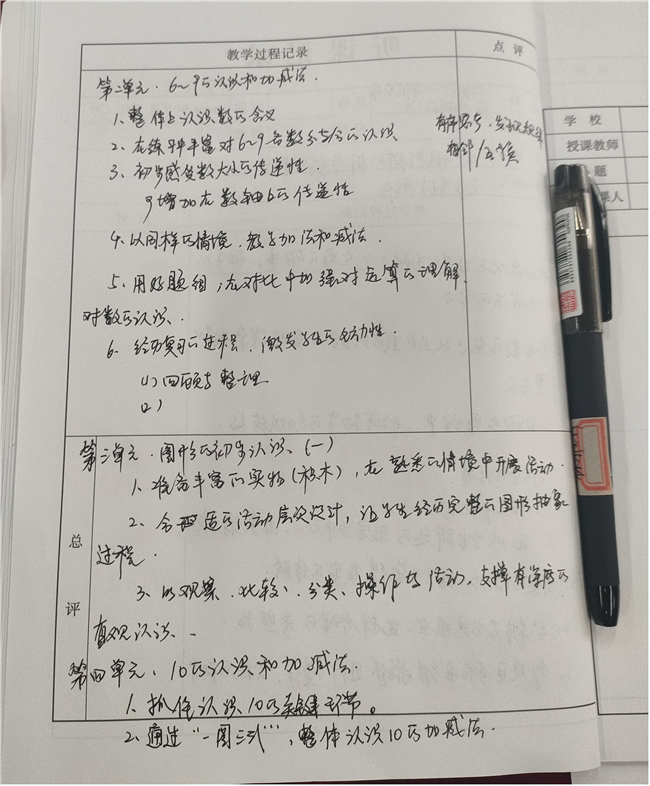 教学过程记录
点评
第二单元·6~9的认识和加减法.
1、整体上认识数的含义
2、在练习中丰富对6~9各数分与合的认识
3、初步感受数大小的传递性.
增加在数轴上的传递性
4、以同样的情境,教学加法和减法.
5、用好题组,在对比中加强对运算的理解
对数的认识、
6、经历复习的过程,激发学生的能动性.
(1) 回顾与整理
(2)
有序思考·发现规律
相邻/互换
学校
授课教师
题
课人
总评
第三单元·图形的初步认识、(一)
1、准备丰富的实物(积木),在熟悉的情境中开展活动.
2、合理适的活动层次设计,让学生经历完整的图形抽象
过程.
3、以观察、比较、分类、操作等活动,支撑有深度的
直观认识、
第四单元、10的认识和加减法.
1、抓住认识10的关键环节。
2、通过“一图三式”,整体认识10的加减法.